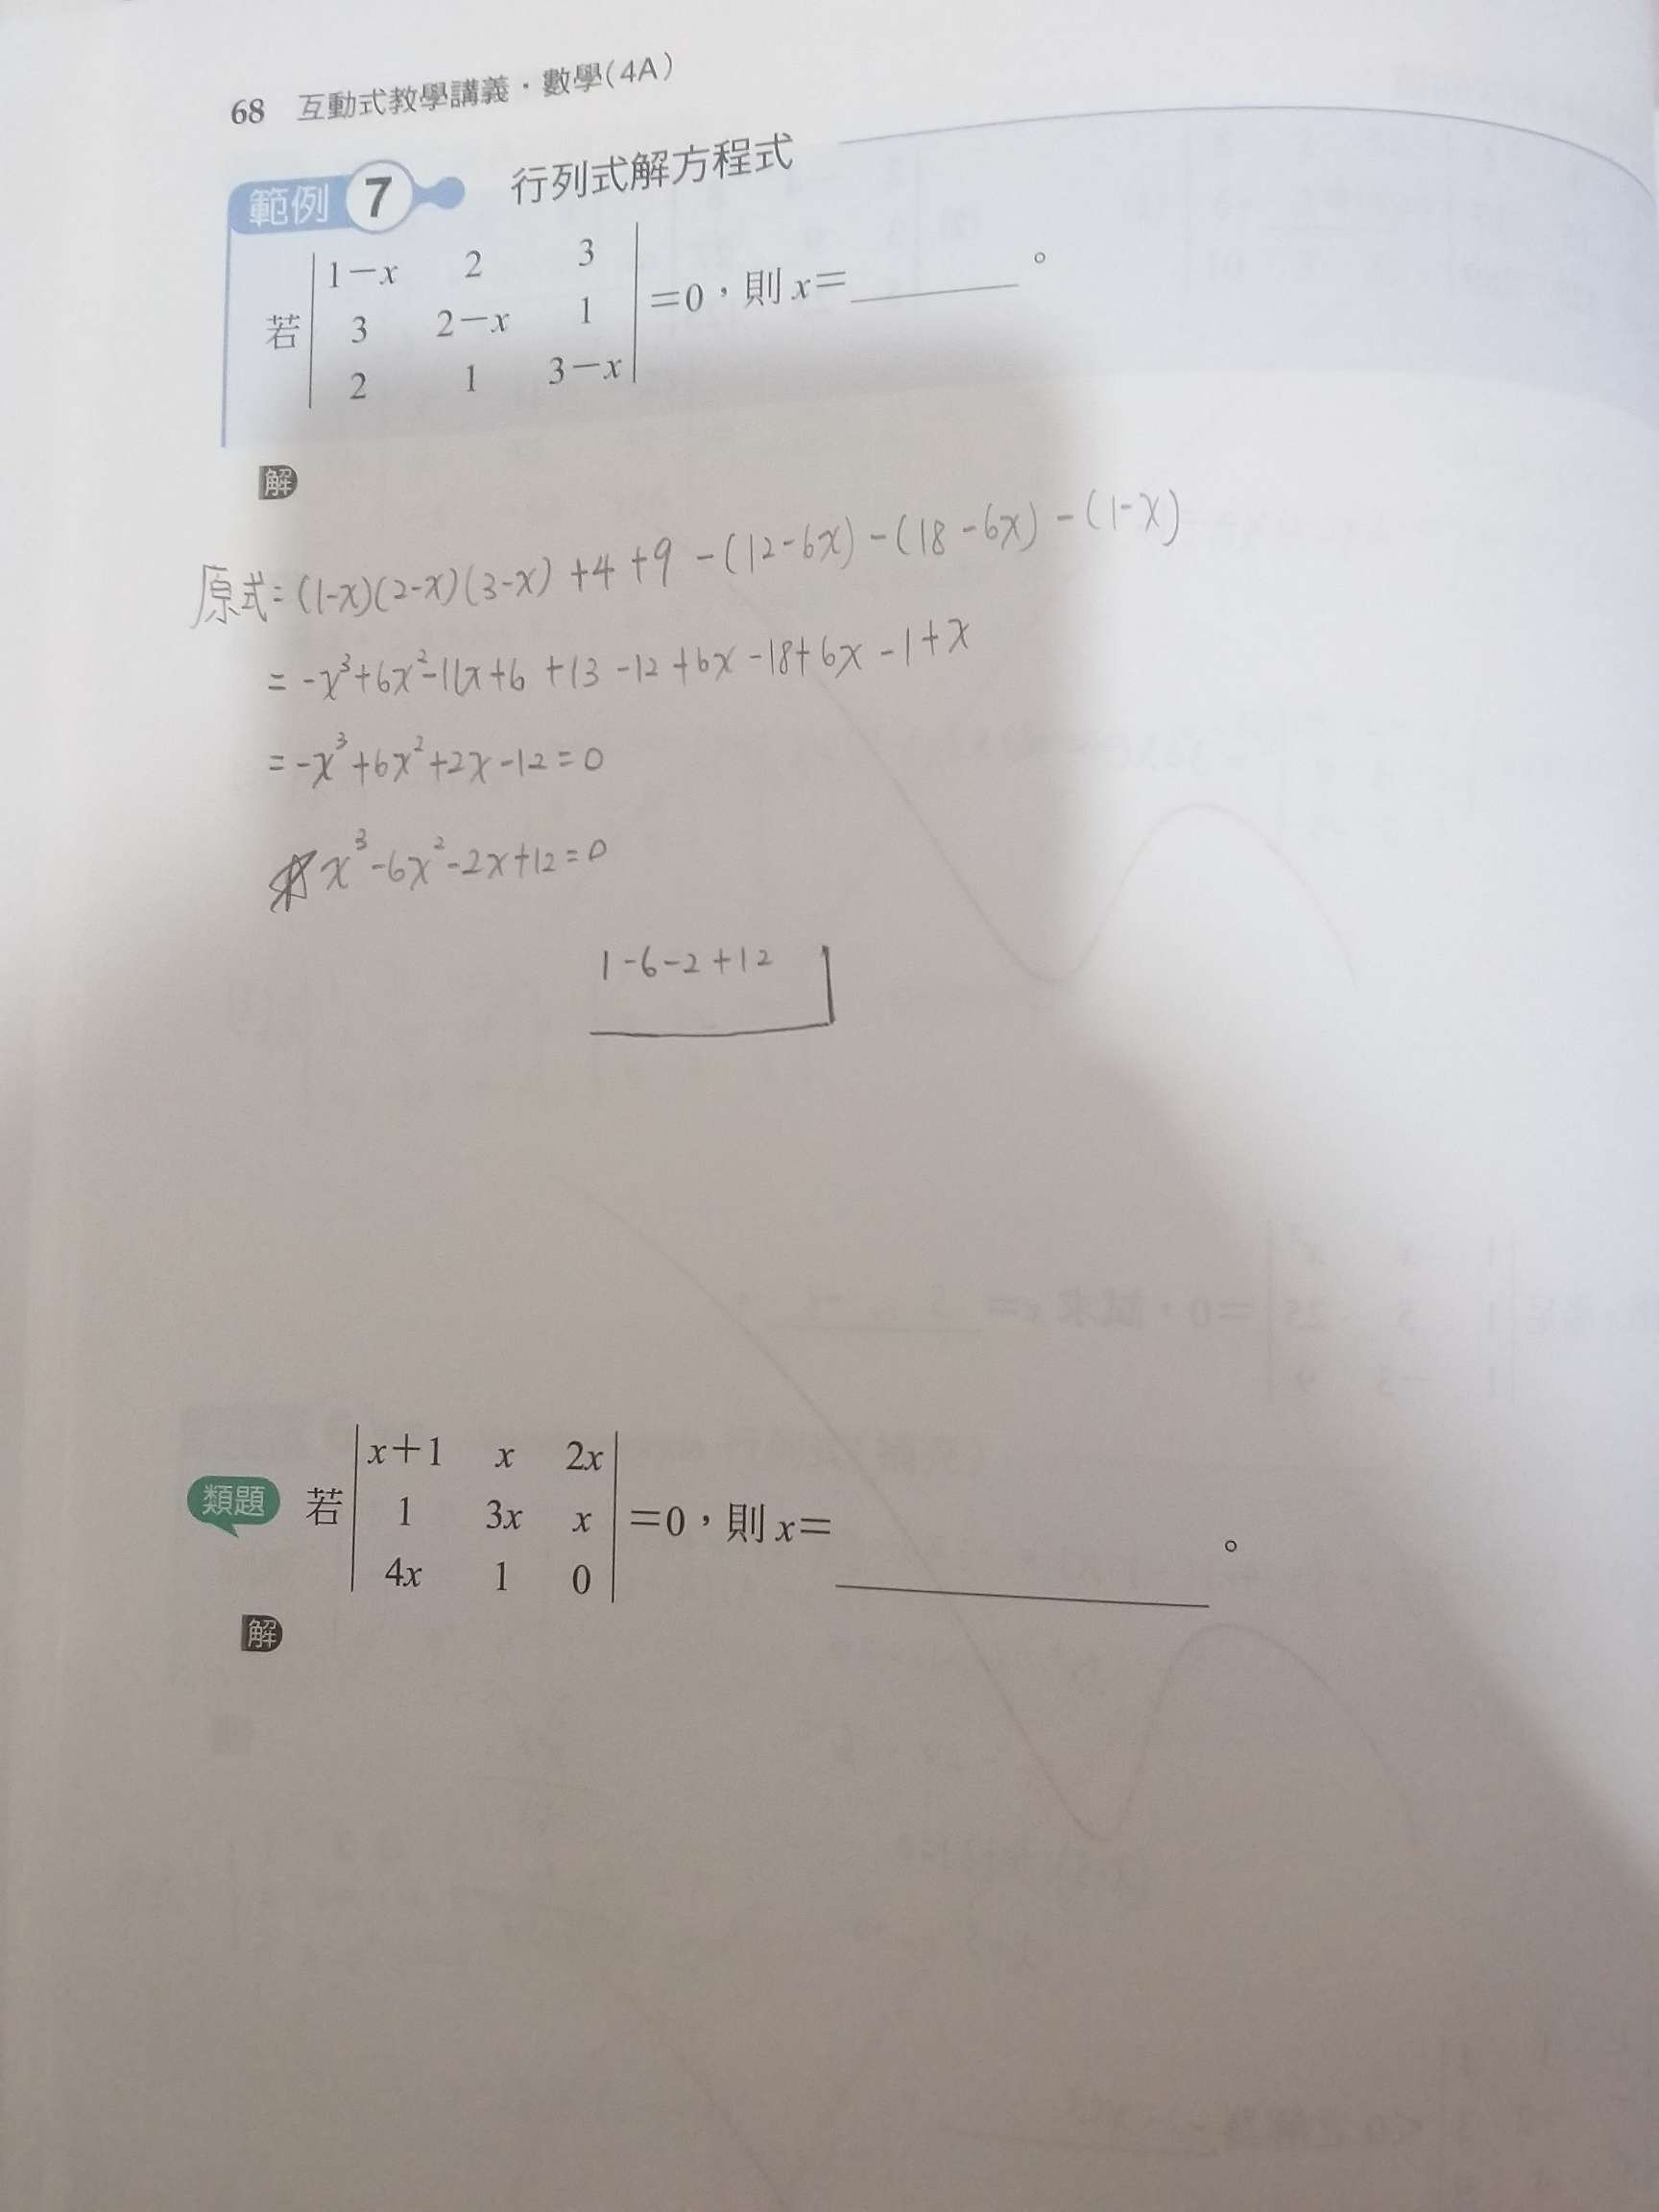 68 互動式教學講義・數學(4A)
範例 7 行列式解方程式
1－x 2 3
若 3 2－x 1 ＝0，則 x＝ 。
2 1 3－x
解
原式= (1-x)(2-x)(3-x) +4 +9 -(12-6x) -(18-6x) -(1-x)
= -x³+6x²-11x+6 +13 -12 +6x -18+6x -1+x
= -x³+6x²+2x-12=0
x³-6x²-2x+12=0
1-6-2+12
x＋1 x 2x
類題 若 1 3x x ＝0，則 x＝ 。
4x 1 0
解